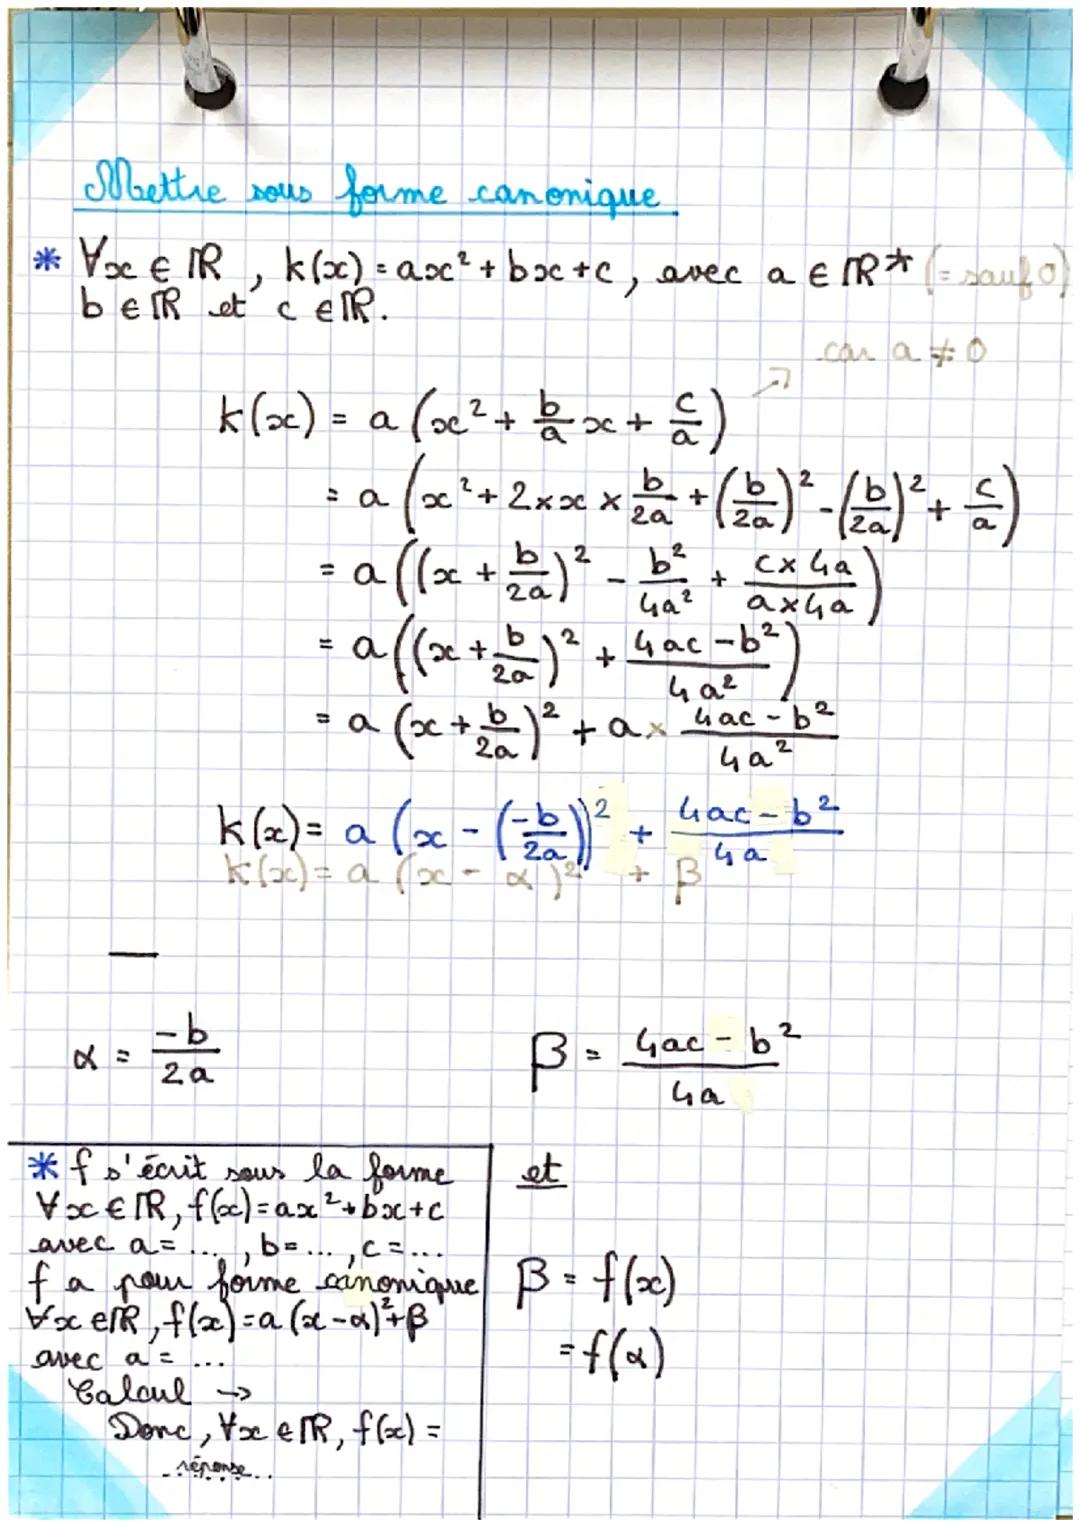 Mettre sous forme canonique
* ∀x ∈ ℝ, k(x) = ax² + bx + c, avec a ∈ ℝ* (= sauf 0)
b ∈ ℝ et c ∈ ℝ.
car a ≠ 0
k(x) = a (x² + b/a x + c/a) ↗
= a (x² + 2 × x × b/2a + (b/2a)² - (b/2a)² + c/a)
= a ((x + b/2a)² - b²/4a² + c×4a/a×4a)
= a ((x + b/2a)² + 4ac - b²/4a²)
= a (x + b/2a)² + a × 4ac - b²/4a²
k(x) = a (x - (-b/2a))² + 4ac - b²/4a
k(x) = a (x - α)² + β
α = -b/2a
β = 4ac - b²/4a
* f s'écrit sous la forme
∀x ∈ ℝ, f(x) = ax² + bx + c
avec a = ..., b = ..., c = ...
f a pour forme canonique
∀x ∈ ℝ, f(x) = a (x - α)² + β
avec a = ...
Calcul →
Donc, ∀x ∈ ℝ, f(x) =
..réponse..
et
β = f(x)
= f(α)